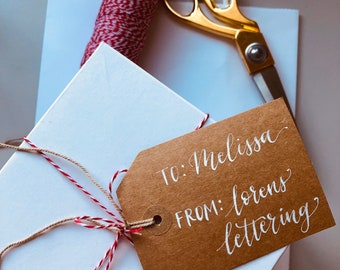 TO: Melissa
FROM: lorens
lettering